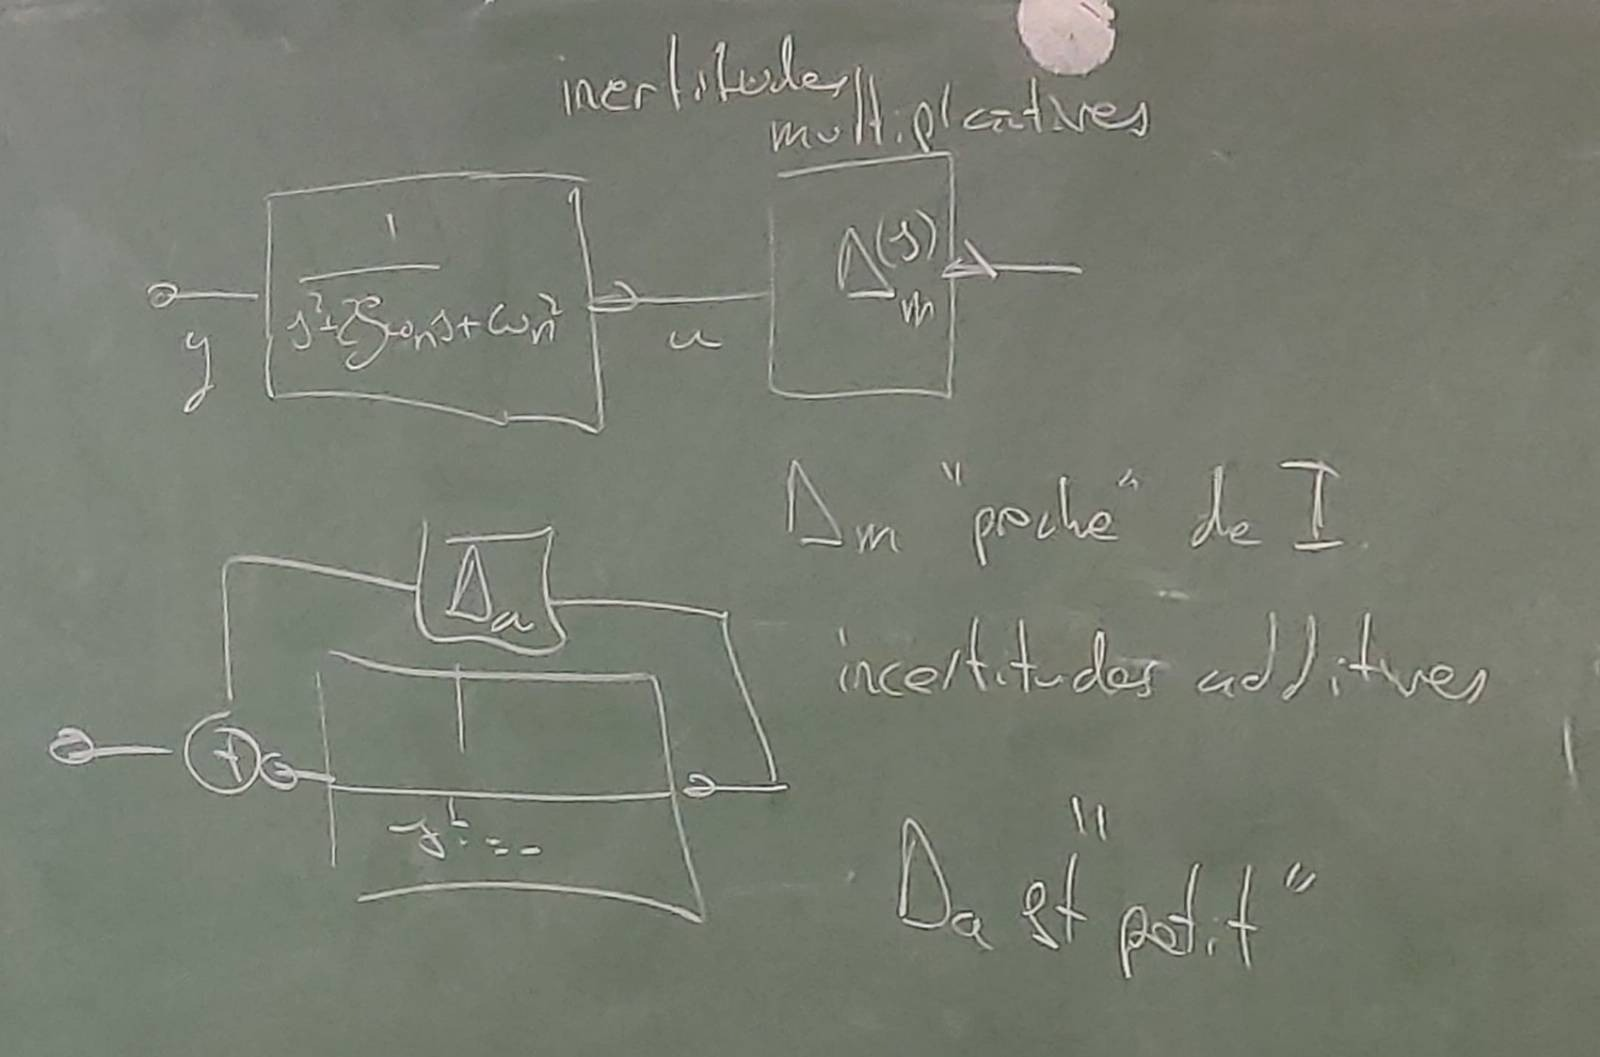 incertitudes
multiplicatives
1
s²+2ζωₙs+ωₙ²
Δₘ(s)
y
u
Δₘ "proche" de I
Δₐ
incertitudes additives
1
s²+...
+
Δₐ est "petit"